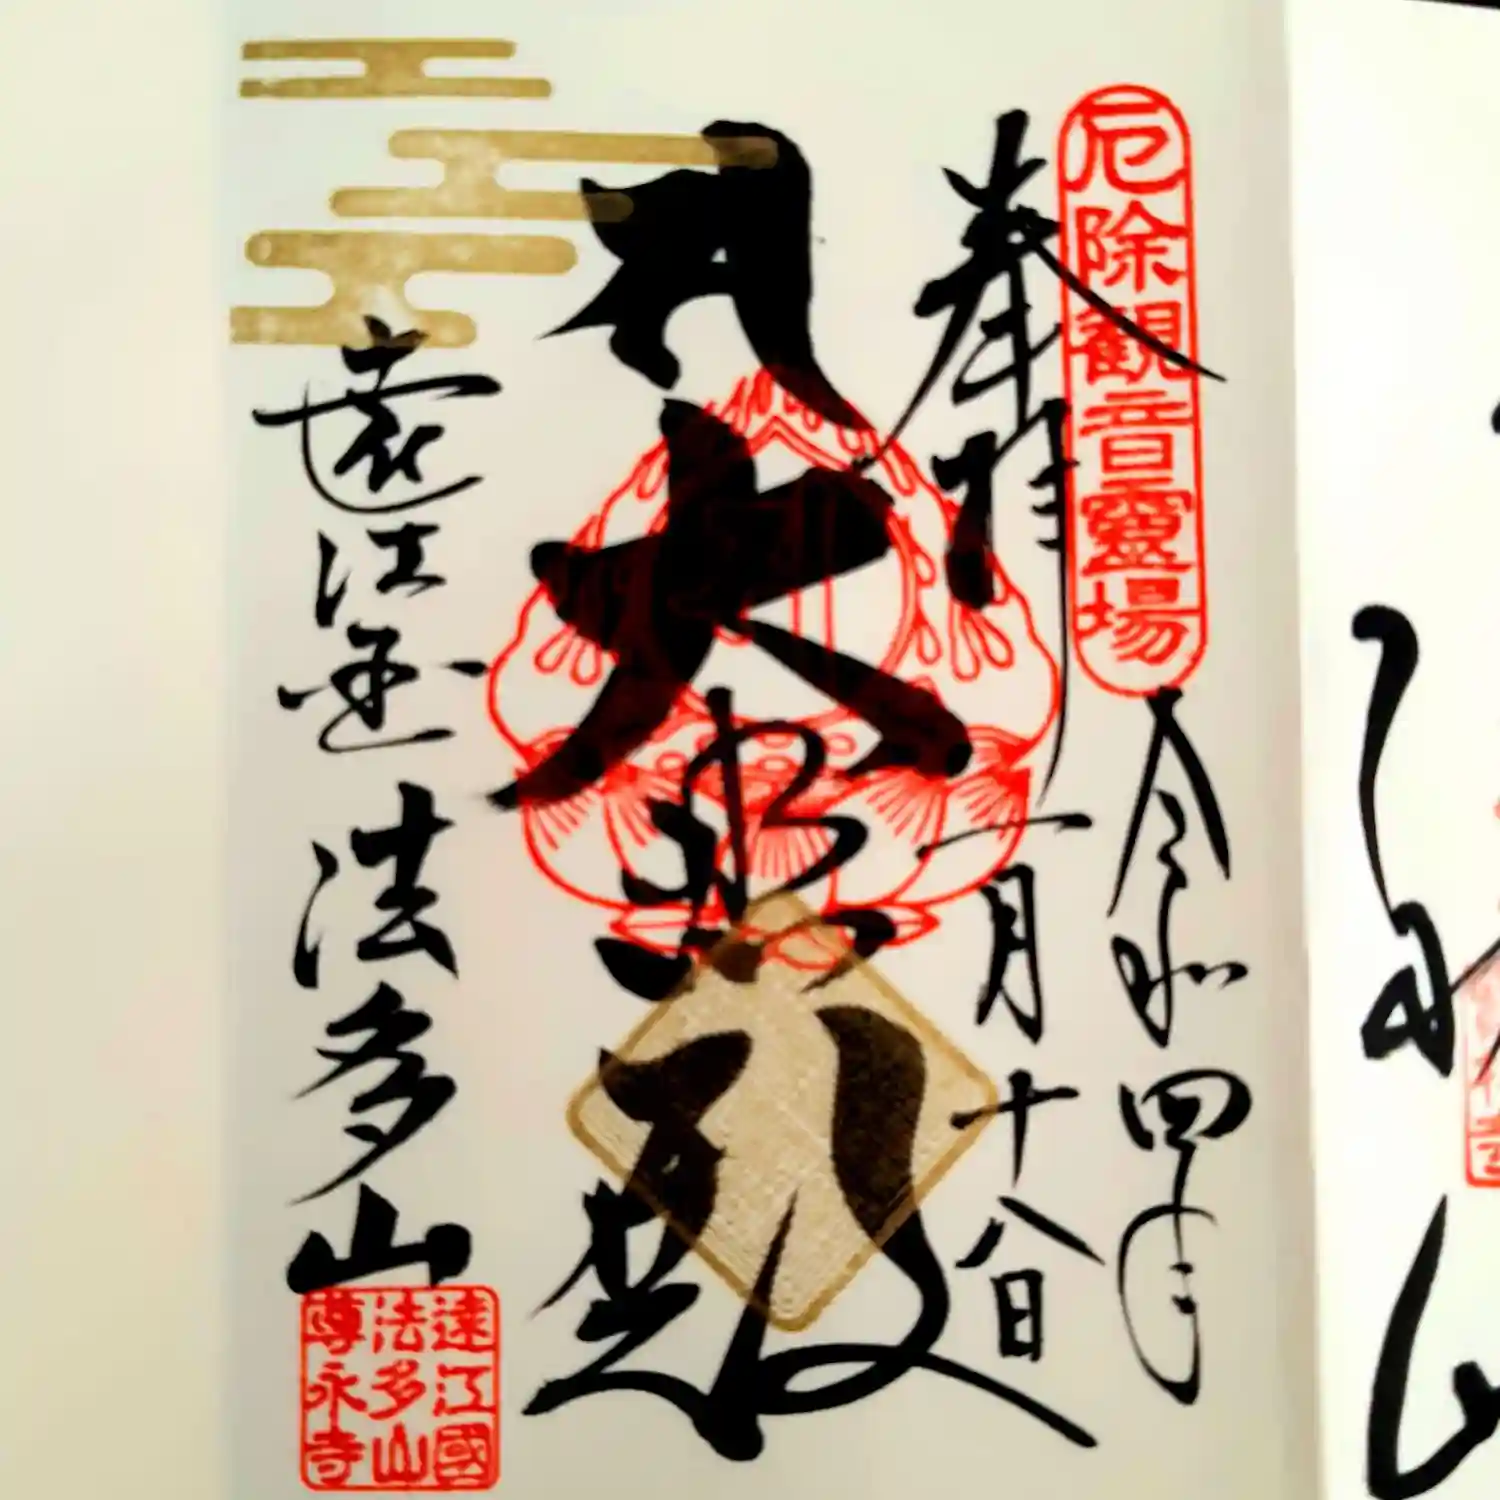 厄除観音霊場
奉拝
令和四年
一月十八日
大悲殿
遠江国 法多山
遠江國
法多山
尊永寺